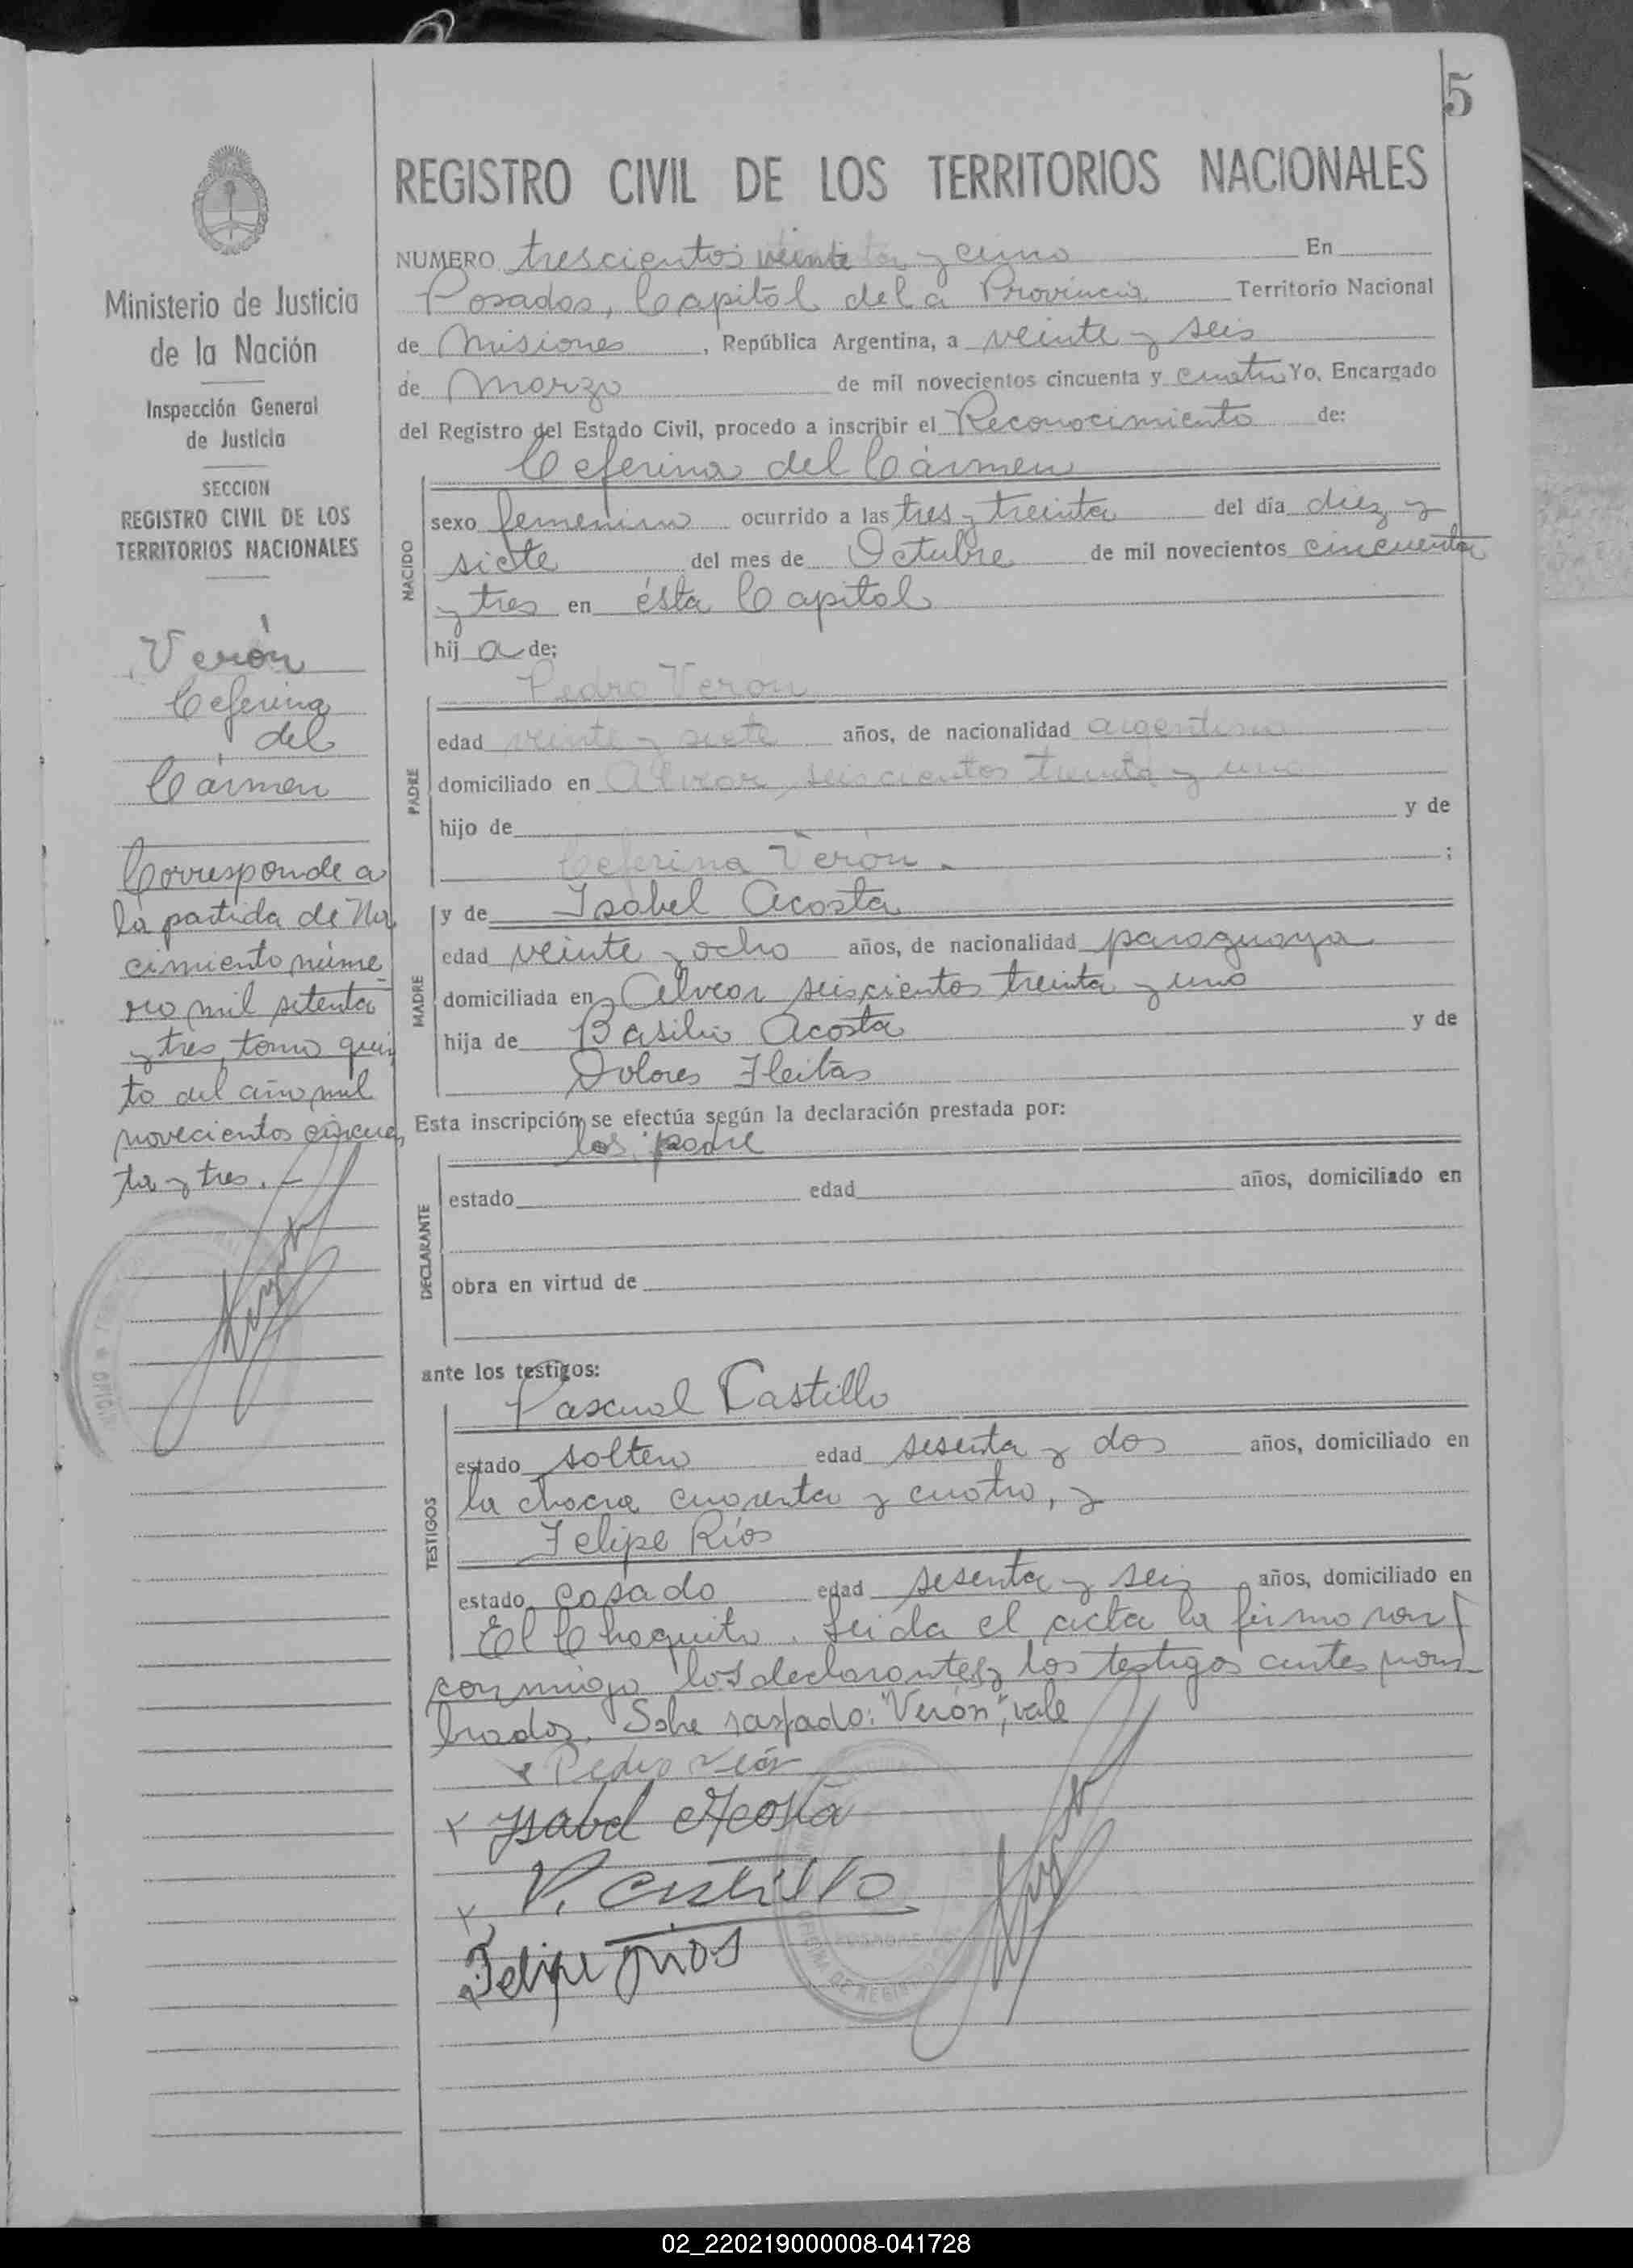 5
REGISTRO CIVIL DE LOS TERRITORIOS NACIONALES
NUMERO trescientos veinte y cinco En
Posadas, Capital de la Provincia Territorio Nacional
de Misiones, República Argentina, a veinte y seis
de Marzo de mil novecientos cincuenta y cuatro Yo, Encargado
del Registro del Estado Civil, procedo a inscribir el Reconocimiento de:
Ceferina del Cármen
NACIDO
sexo femenino ocurrido a las tres y treinta del día diez y
siete del mes de Octubre de mil novecientos cincuenta
y tres en ésta Capital
hij a de:
Pedro Veron
PADRE
edad veinte y siete años, de nacionalidad argentino
domiciliado en Alvear, seiscientos treinta y uno
hijo de y de
Ceferina Verón. ;
MADRE
y de Isabel Acosta
edad veinte y ocho años, de nacionalidad paraguaya
domiciliada en Alvear seiscientos treinta y uno
hija de Basilio Acosta y de
Dolores Fleitas
Esta inscripción se efectúa según la declaración prestada por:
los padre
DECLARANTE
estado edad años, domiciliado en
obra en virtud de
ante los testigos:
TESTIGOS
Pascual Castillo
estado soltero edad sesenta y dos años, domiciliado en
la chacra cuarenta y cuatro, y
Felipe Ríos
estado casado edad sesenta y seis años, domiciliado en
El Chaquito. Leida el acta la firmaron
conmigo los declarantes y los testigos antes nom
brados. Sobre raspado: "Verón", vale
Pedro
x Ysabel Acosta
x P. Castillo
Felipe Rios
Ministerio de Justicia
de la Nación
Inspección General
de Justicia
SECCION
REGISTRO CIVIL DE LOS
TERRITORIOS NACIONALES
Verón
Ceferina
del
Cármen
Corresponde a
la partida de Na
cimiento núme
ro mil setenta
y tres, tomo quin
to del año mil
novecientos cincuen
ta y tres.
02_220219000008-041728